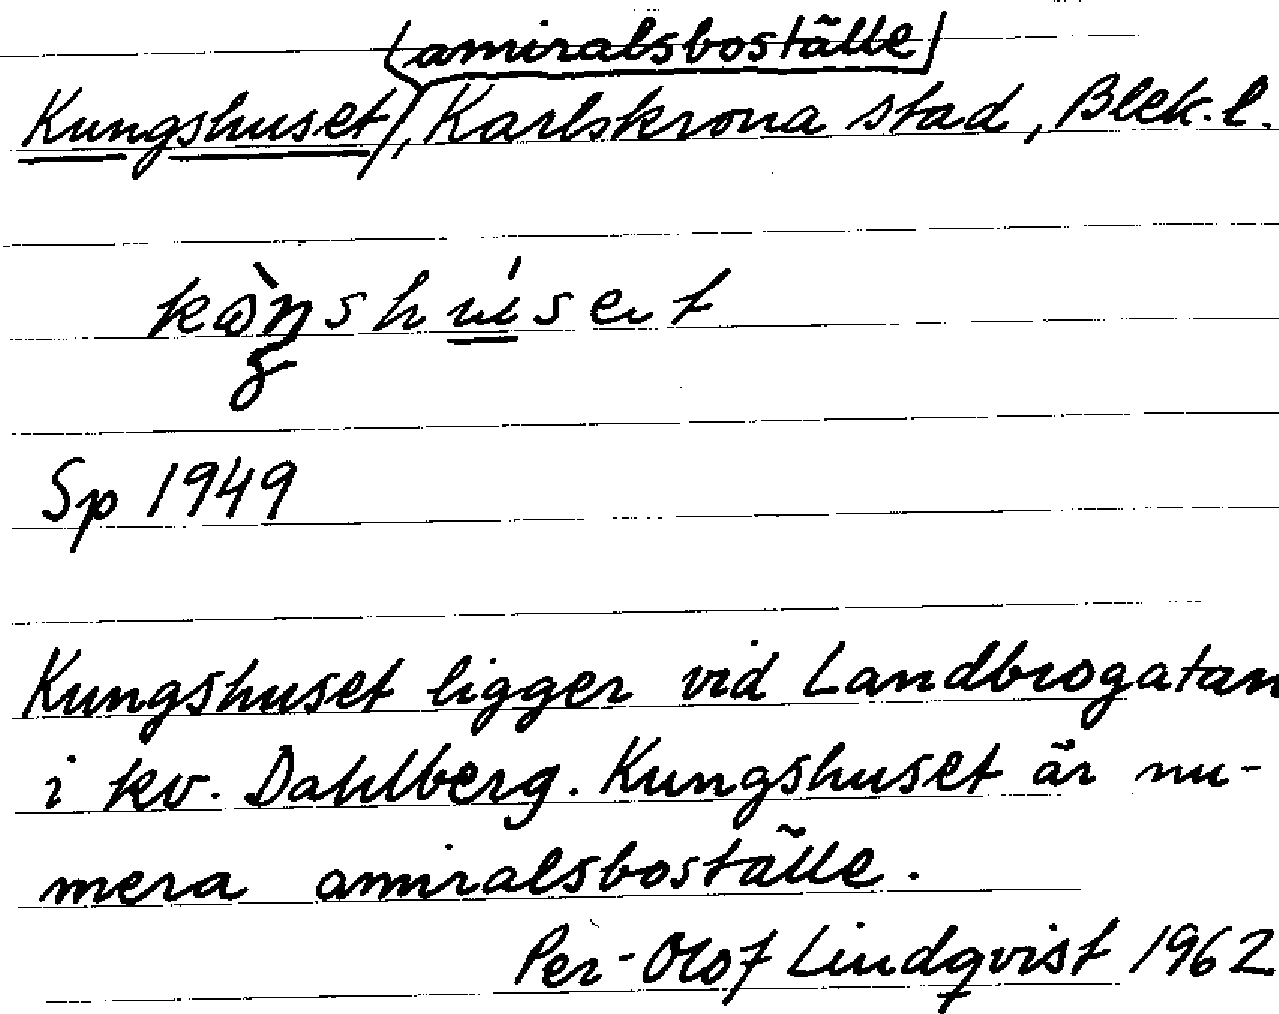 Kungshuset (amiralsboställe), Karlskrona stad, Blek.l.
Sp 1949
Kungshuset ligger vid Landbrogatan
i kv. Dahlberg. Kungshuset är nu-
mera amiralsboställe.
Per-Olof Lindqvist 1962